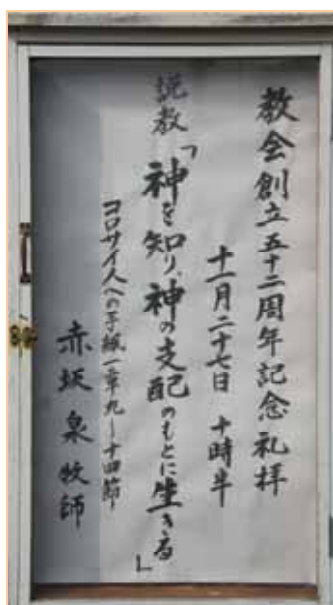 教会創立五十二周年記念礼拝
十一月二十七日 十時半
説教「神を知り、神の支配のもとに生きる」
コロサイ人への手紙一章九ー十四節
赤坂 泉 牧師